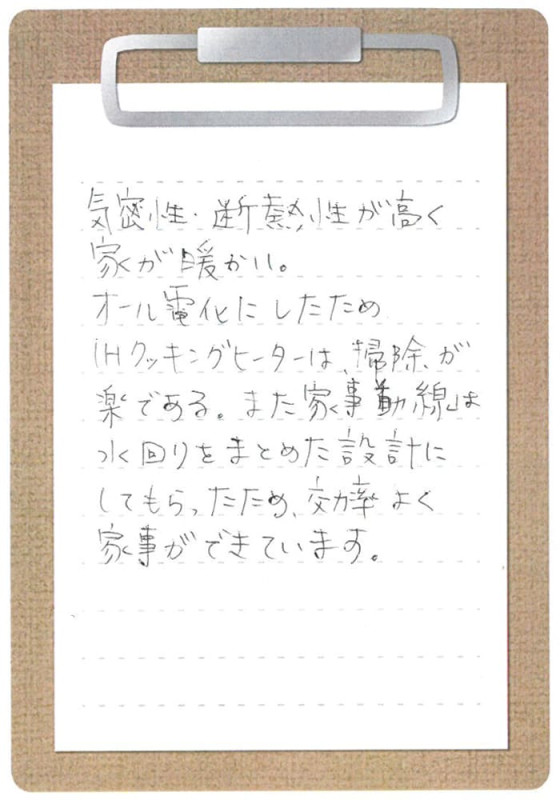 気密性・断熱性が高く
家が暖かい。
オール電化にしたため
IHクッキングヒーターは、掃除が
楽である。また家事動線は
水回りをまとめた設計に
してもらったため、効率よく
家事ができています。